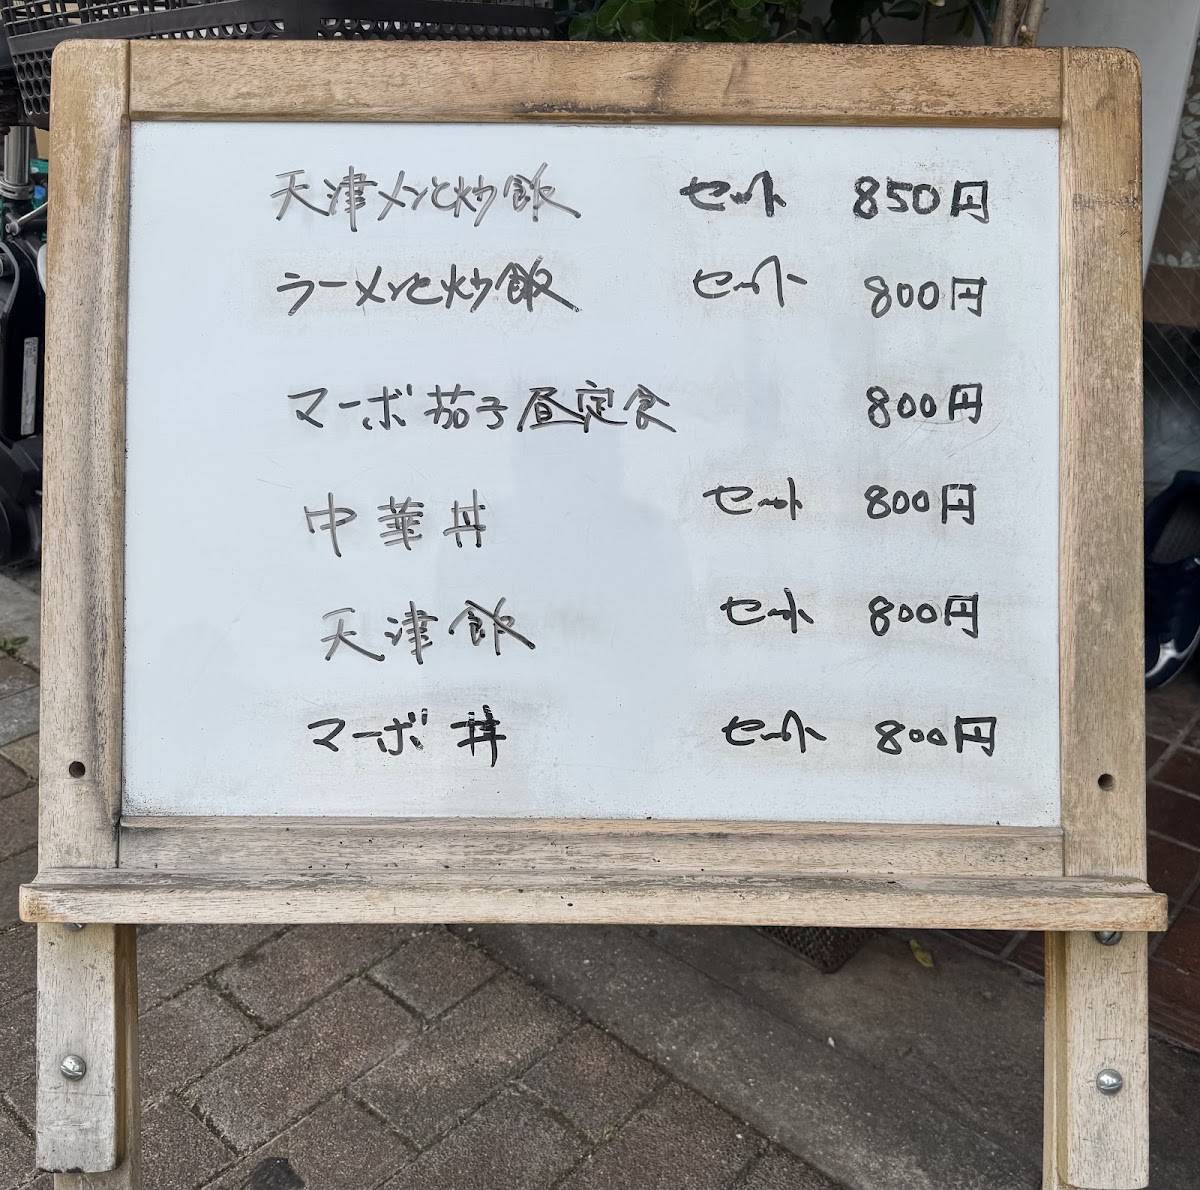 天津メンと炒飯 セット 850円
ラーメンと炒飯 セット 800円
マーボ茄子昼定食 800円
中華丼 セット 800円
天津飯 セット 800円
マーボ丼 セット 800円